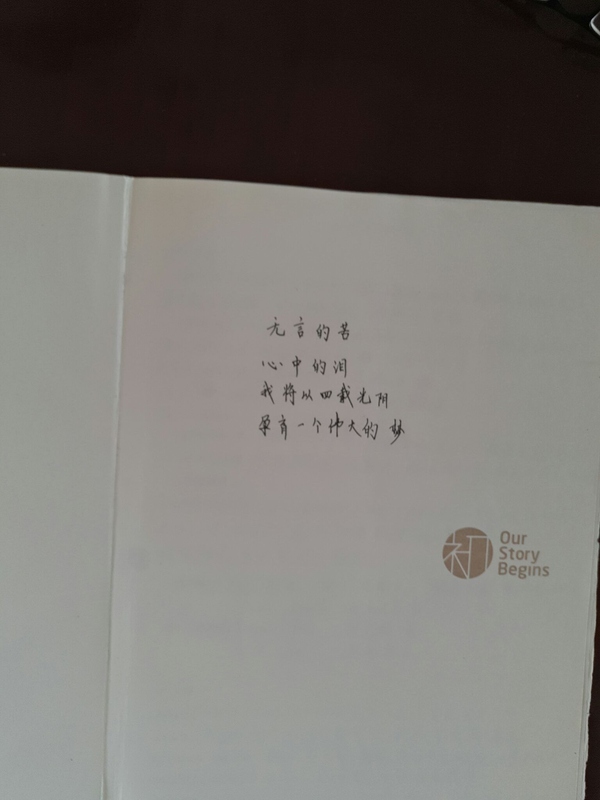 无言的苦
心中的泪
我将以四载光阴
孕育一个伟大的梦
初
Our
Story
Begins